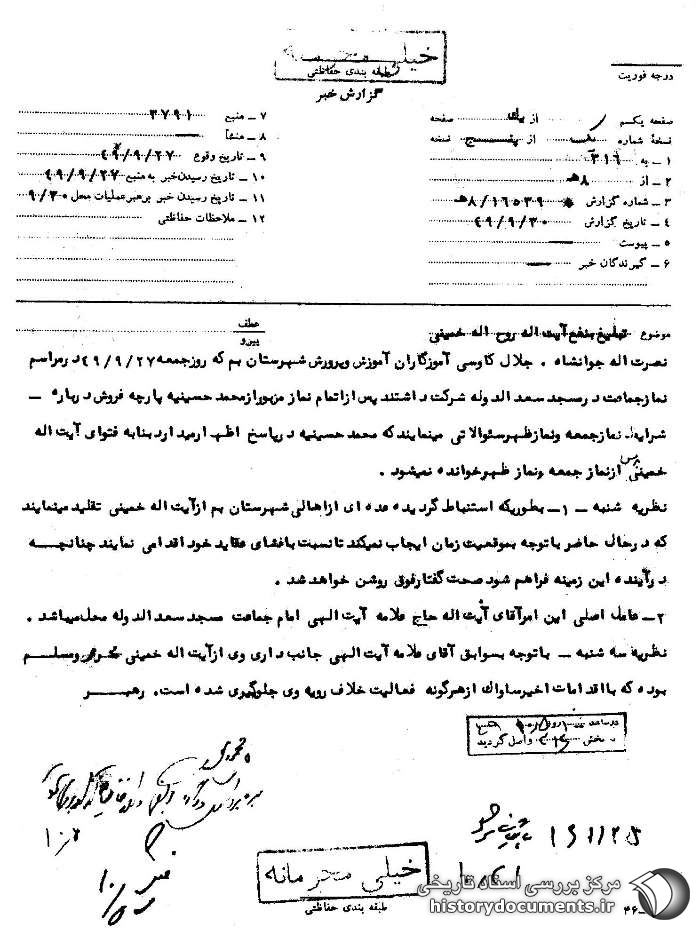 خیلی محرمانه
طبقه بندی حفاظتی
گزارش خبر
درجه فوریت
صفحه یکم از صفحه
نسخهٔ شماره یک از پنج نسخه
۱ ـ به ۳۱۶
۲ ـ از ۸هـ
۳ ـ شماره گزارش ۸/۱۶۵۳۹هـ
۴ ـ تاریخ گزارش ۴۹/۹/۳۰
۵ ـ پیوست —
۶ ـ گیرندگان خبر —
۷ ـ منبع ۳۷۹۱
۸ ـ منشأ —
۹ ـ تاریخ وقوع ۴۹/۹/۲۷
۱۰ ـ تاریخ رسیدن خبر به منبع ۴۹/۹/۲۷
۱۱ ـ تاریخ رسیدن خبر برهبر عملیات محل ۹/۳۰
۱۲ ـ ملاحظات حفاظتی
موضوع تبلیغ بنفع آیت اله روح اله خمینی
عطف
پیرو
نصرت اله جوانشاه . جلال کاوسی آموزگاران آموزش وپرورش شهرستان بم که روزجمعه ۴۹/۹/۲۷ درمراسم
نمازجماعت درمسجد سعد الدوله شرکت داشتند پس ازاتمام نماز مزبورازمحمد حسینیه پارچه فروش درباره ـ
شرایط نمازجمعه ونمازظهرسئوالاتی مینمایند که محمد حسینیه درپاسخ اظهارمیدارد بنابه فتوای آیت اله
خمینی پس ازنماز جمعه ونماز ظهرخوانده نمیشود .
نظریه شنبه ـ ۱ـ بطوریکه استنباط گردیده عده ای ازاهالی شهرستان بم ازآیت اله خمینی تقلید مینمایند
که درحال حاضر باتوجه بموقعیت زمان ایجاب نمیکند تانسبت بافشای عقاید خود اقدامی نمایند چنانچه
درآینده این زمینه فراهم شود صحت گفتارفوق روشن خواهد شد .
۲ـ عامل اصلی این امرآقای آیت اله حاج علامه آیت الهی امام جماعت مسجد سعد الدوله محل میباشد .
نظریه سه شنبه ـ باتوجه بسوابق آقای علامه آیت الهی جانب داری وی ازآیت اله خمینی محرز ومسلم
بوده که بااقدامات اخیرساواک ازهرگونه فعالیت خلاف رویه وی جلوگیری شده است. رهبر
در ساعت روز
ببخش ۳۱۶ واصل گردید
خیلی محرمانه
طبقه بندی حفاظتی
مرکز بررسی اسناد تاریخی
historydocuments.ir